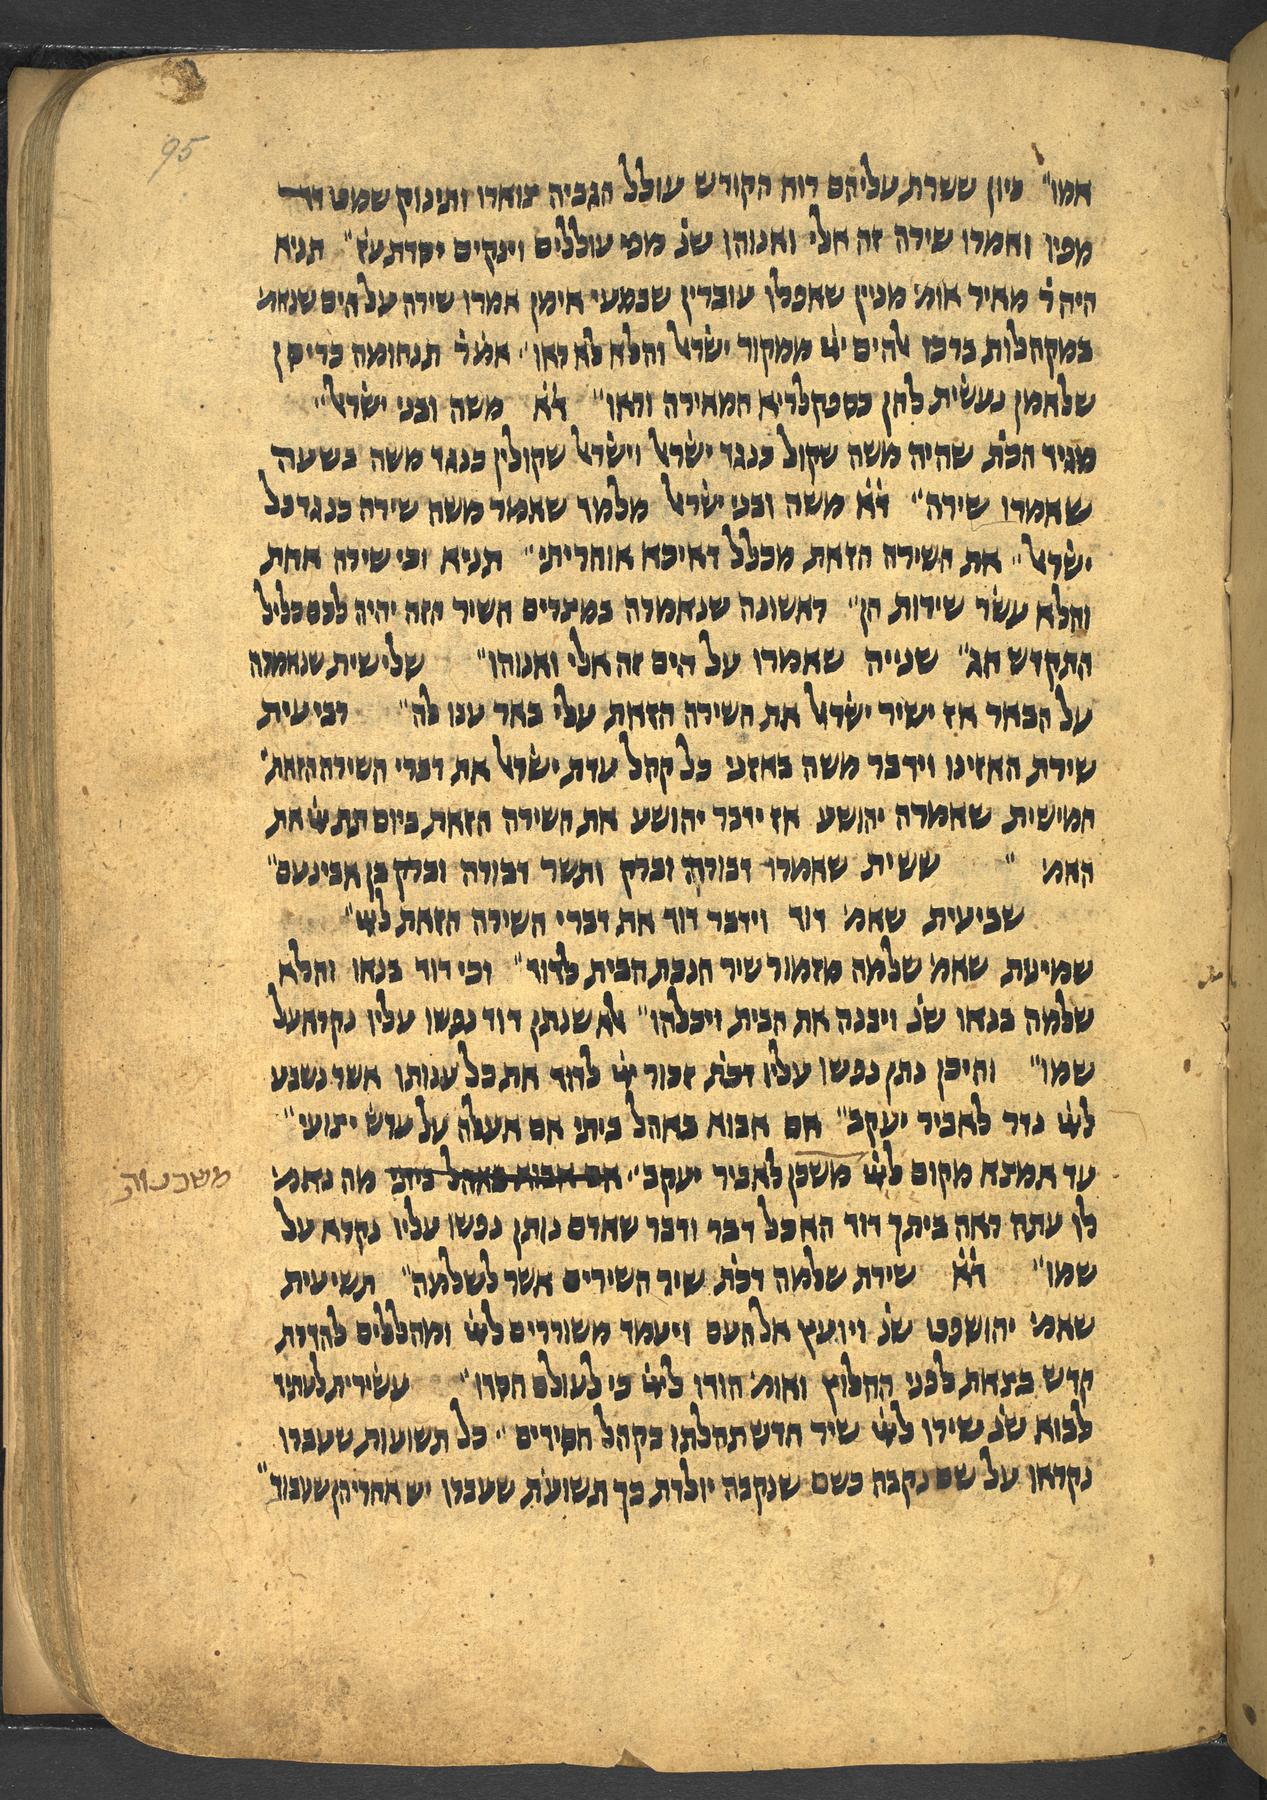 95
אמו" כיון ששרת עליהם רוח הקודש עולל הגביה צוארו ותינוק שמט דד
מפיו ואמרו שירה זה אלי ואנוהו שנ' מפי עוללים ויונקים יסדת עז" תניא
היה ר' מאיר אומ' מנין שאפלו עוברין שבמעי אימן אמרו שירה על הים שנאמ'
במקהלות ברכו אלהים יי' ממקור ישראל והלא לא ראו" אמ' ר' תנחומה כריסן
שלאמן נעשית להן כספקלריא המאירה וראו" ד"א משה ובני ישראל"
מגיד הכת' שהיה משה שקול כנגד ישראל וישראל שקולין כנגד משה בשעה
שאמרו שירה" ד"א משה ובני ישראל מלמד שאמר משה שירה כנגד כל
ישראל" את השירה הזאת מכלל דאיכא אוחריתי" תניא וכי שירה אחת
והלא עשר שירות הן" ראשונה שנאמרה במצרים השיר הזה יהיה לכם כליל
התקדש חג" שנייה שאמרו על הים זה אלי ואנוהו" שלישית שנאמרה
על הבאר אז ישיר ישראל את השירה הזאת עלי באר ענו לה" רביעית
שירת האזינו וידבר משה באזני כל קהל עדת ישראל את דברי השירה הזאת"
חמישית שאמרה יהושע אז ידבר יהושע את השירה הזאת ביום תת יי' את
האמ' " ששית שאמרו דבורה וברק ותשר דבורה וברק בן אבינעם"
שביעית שאמ' דוד וידבר דוד את דברי השירה הזאת ליי'"
שמיעת שאמ' שלמה מזמור שיר חנכת הבית לדוד" וכי דוד בנאו והלא
שלמה בנאו שנ' ויבנה את הבית ויכלהו" אלא שנתן דוד נפשו עליו נקרא על
שמו" והיכן נתן נפשו עליו דכת' זכור יי' לדוד את כל ענותו אשר נשבע
ליי' נדר לאביר יעקב" אם אבוא באהל ביתי אם אעלה על ערש יצועי"
עד אמצא מקום ליי' משכן לאביר יעקב" אם אבוא באהל ביתי מה נאמ'
משכנות
לו עתה ראה ביתך דוד הא כל דבר ודבר שאדם נותן נפשו עליו נקרא על
שמו" ד"א שירת שלמה דכת' שיר השירים אשר לשלמה" תשיעית
שאמ' יהושפט שנ' ויועץ אל העם ויעמד משוררים ליי' ומהללים להדרת
קדש בצאת לפני החלוץ ואומ' הודו ליי' כי לעולם חסדו" עשירית לעתיד
לבוא שנ' שירו ליי' שיר חדש תהלתו בקהל חסידים" כל תשועות שעברו
נקראו על שם נקבה כשם שנקבה יולדת כך תשועות שעברו יש אחריהן שעבוד"